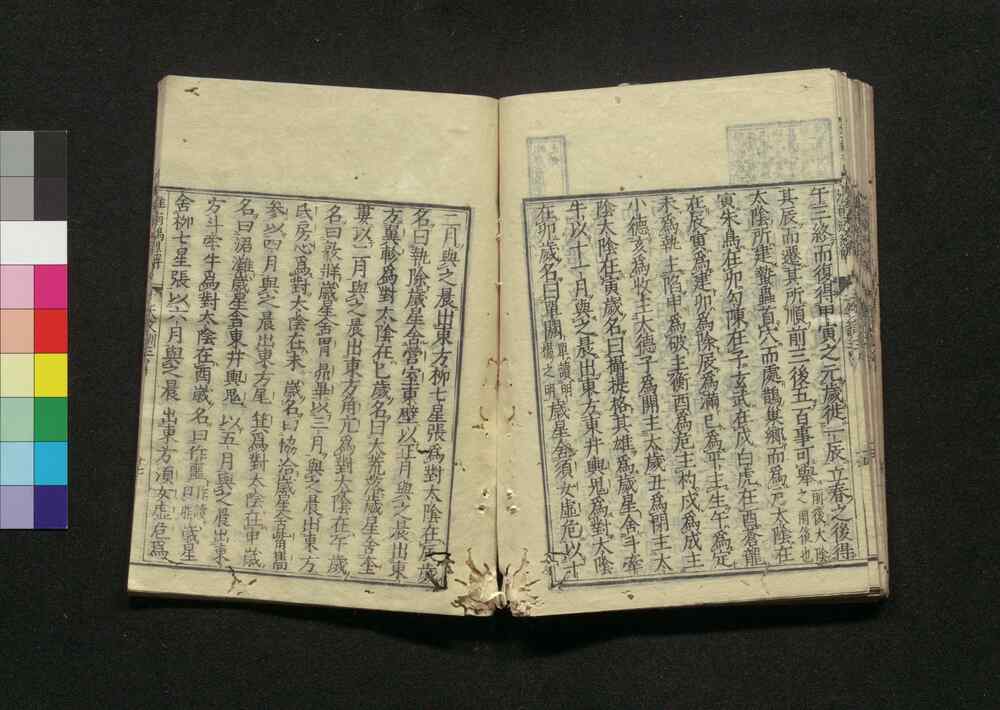 午三終而復得甲寅之元歲徙一辰立春之後得
其辰而遷其所順前三後五百事可舉
太陰所建蟄蟲首穴而處鵲巢鄉而爲戶太陰在
寅朱鳥在卯勾陳在子玄武在戌白虎在酉蒼龍
在辰寅爲建卯爲除辰爲滿巳爲平主生午爲定
未爲執主陷申爲破主衡酉爲危主杓戌爲成主
小德亥爲收主大德子爲開主太歲丑爲閉主太
陰太陰在寅歲名曰攝提格其雄爲歲星舍斗牽
牛以十一月與之晨出東方東井輿鬼爲對太陰
在卯歲名曰單閼單讀明揚之明歲星舍須女虛危以十
二月與之晨出東方柳七星張爲對太陰在辰歲
名曰執除歲星舍營室東壁以正月與之晨出東
方翼軫爲對太陰在巳歲名曰大荒落歲星舍奎
婁以二月與之晨出東方角亢爲對太陰在午歲
名曰敦牂歲星舍胃昴畢以三月與之晨出東方
氐房心爲對太陰在未歲名曰協洽歲星舍觜觿
參以四月與之晨出東方尾箕爲對太陰在申歲
名曰涒灘歲星舍東井輿鬼以五月與之晨出東
方斗牽牛爲對太陰在酉歲名曰作鄂歲星
舍柳七星張以六月與之晨出東方須女虛危爲